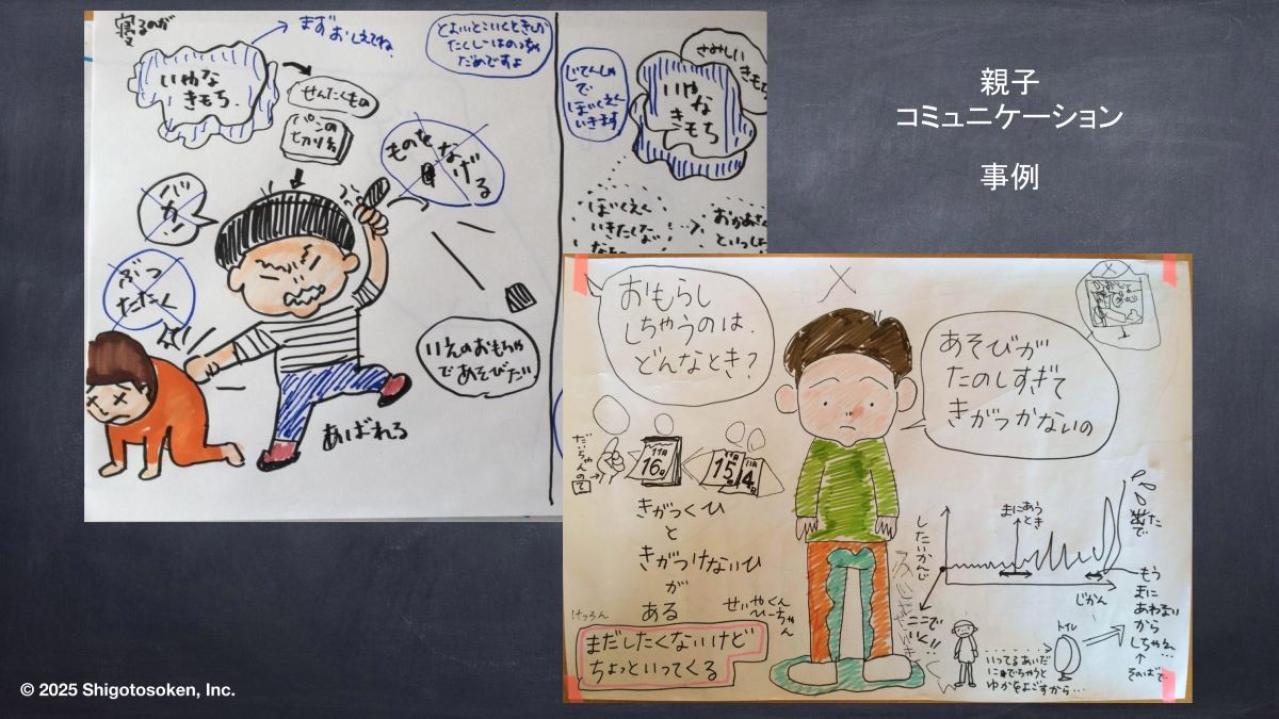 親子
コミュニケーション
事例
寝るのが
いやな
きもち.
まずおしえてね
せんたくもの
パンの
ものをなげる
バカ!
ぶつ
たたく
いえのおもちゃ
であそびだ.
あばれる
じてんしゃ
で
ほいくえん
いきます
さみしい
きもち
いやな
きもち
ほいくえん
いきたくな
おかあさ
といっし
おもらし
しちゃうのは.
どんなとき?
あそびが
たのしすぎて
きがつかないの
だいちゃんのて
11月
16
15
14
きがつくひ
と
きがつけないひ
が
ある
けつろん
せいやくん
ひーちゃん
まだしたくないけど
ちょっといってくる
したいかんじ
まにあう
とき
じかん
ここで
いく!!
トイレ
いってるあいだ
にでちゃうと
ゆかをよごすから…
もう
まに
あわない
から
しちゃえ…
そのばで
© 2025 Shigotosoken, Inc.